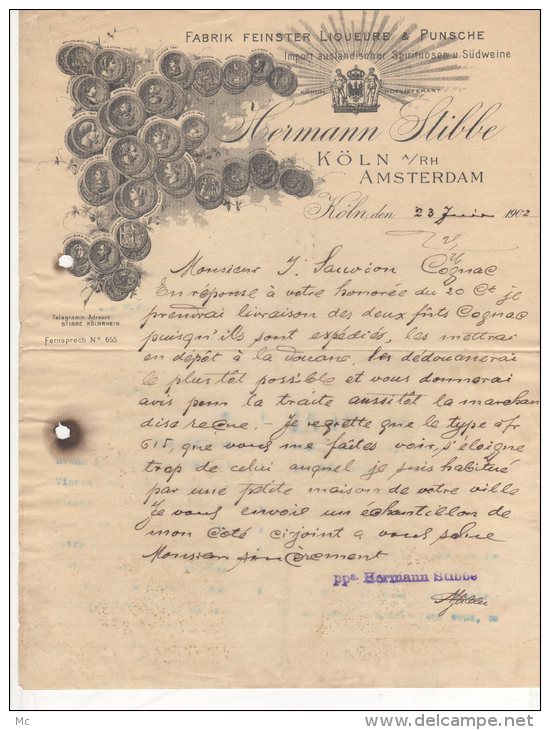 FABRIK FEINSTER LIQUEURE & PUNSCHE
Import ausländischer Spirituosen u. Südweine
KÖNIGL. HOFLIEFERANT
Hermann Stibbe
KÖLN A/RH
AMSTERDAM
Köln, den 23 Juin 1902
Telegramm-Adresse:
STIBBE KÖLNRHEIN.
Fernsprech Nº 655
Monsieur J. Sauvion Cognac
En réponse à votre honorée du 20 Ct je
prendrai livraison des deux fûts Cognac
puisqu'ils sont expédiés, les mettrai
en dépôt à la douane, les dédouanerai
le plus tôt possible et vous donnerai
avis pour la traite aussitôt la marchan
dise reçue. - Je regrette que le type a fr
615, que vous me faites voir, s'éloigne
trop de celui auquel je suis habitué
par une petite maison de votre ville
Je vous envoie un échantillon de
mon coté ci-joint & vous salue
Monsieur sincèrement
ppa. Hermann Stibbe
Mc
www.delcampe.net